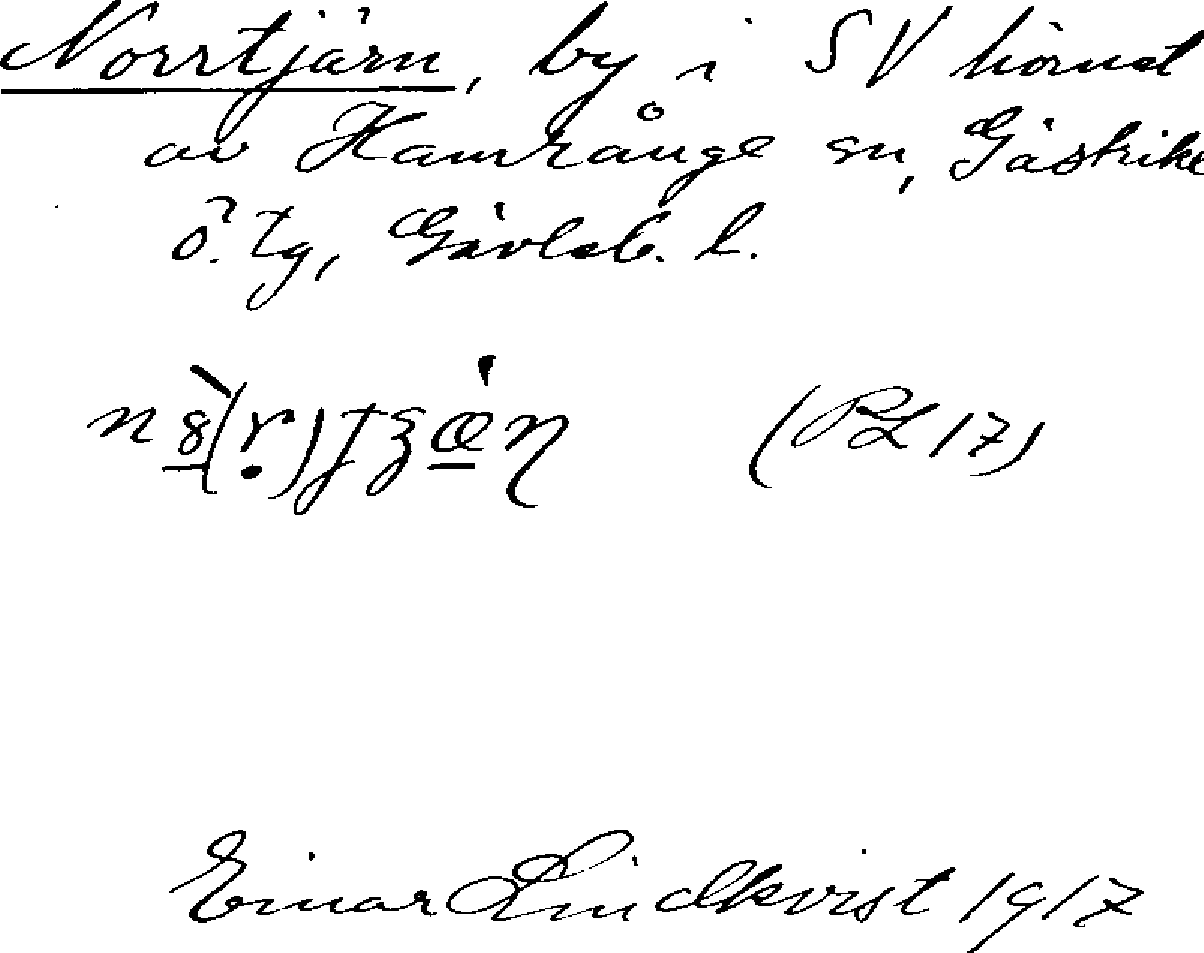 Norrtjärn, by i SV hörnet
av Hamrånge sn, Gästrike
ö. tg, Gävleb. l.
(PL 17)
Einar Lindkvist 1917